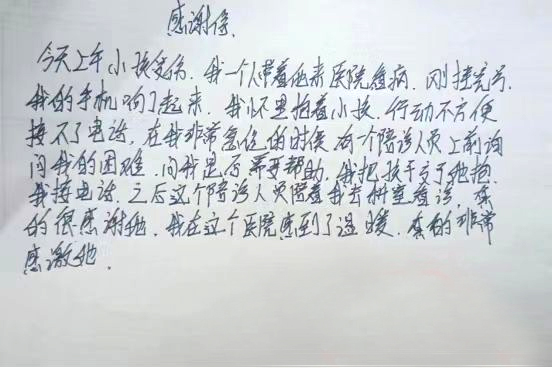 感谢信.
今天上午小孩受伤.我一个人带着他来医院看病.刚挂完号.
我的手机响了起来.我怀里抱着小孩.行动不方便
接不了电话,在我非常急促的时候有个陪诊人员上前询
问我的困难.问我是否需要帮助.我把孩子交于他抱
我接电话.之后这个陪诊人员陪着我去科室看诊,真
的很感谢他.我在这个医院感到了温暖.真的非常
感激他.